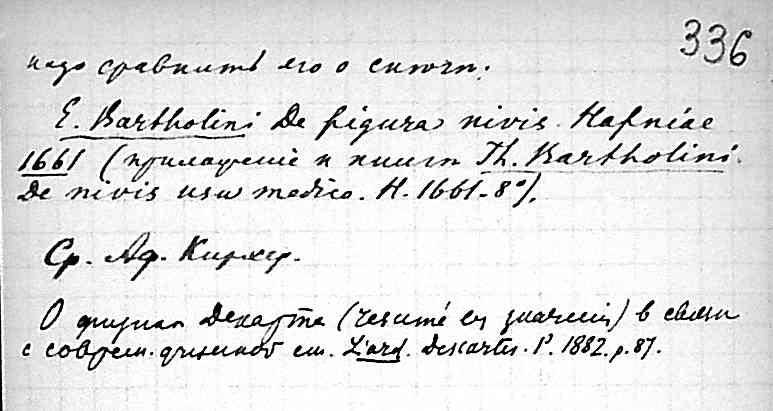 336
надо сравнить его о снѣги.
E. Bartholini De figura nivis. Hafniae
1661 (приложеніе к книги Th. Bartholini.
De nivis usu medico. H. 1661. 8°).
Ср. Аф. Кирхер.
О физики Декарта (resumé ея значенія) в связи
с соврем. физикой см. Liard. Descartes. P. 1882. p. 87.